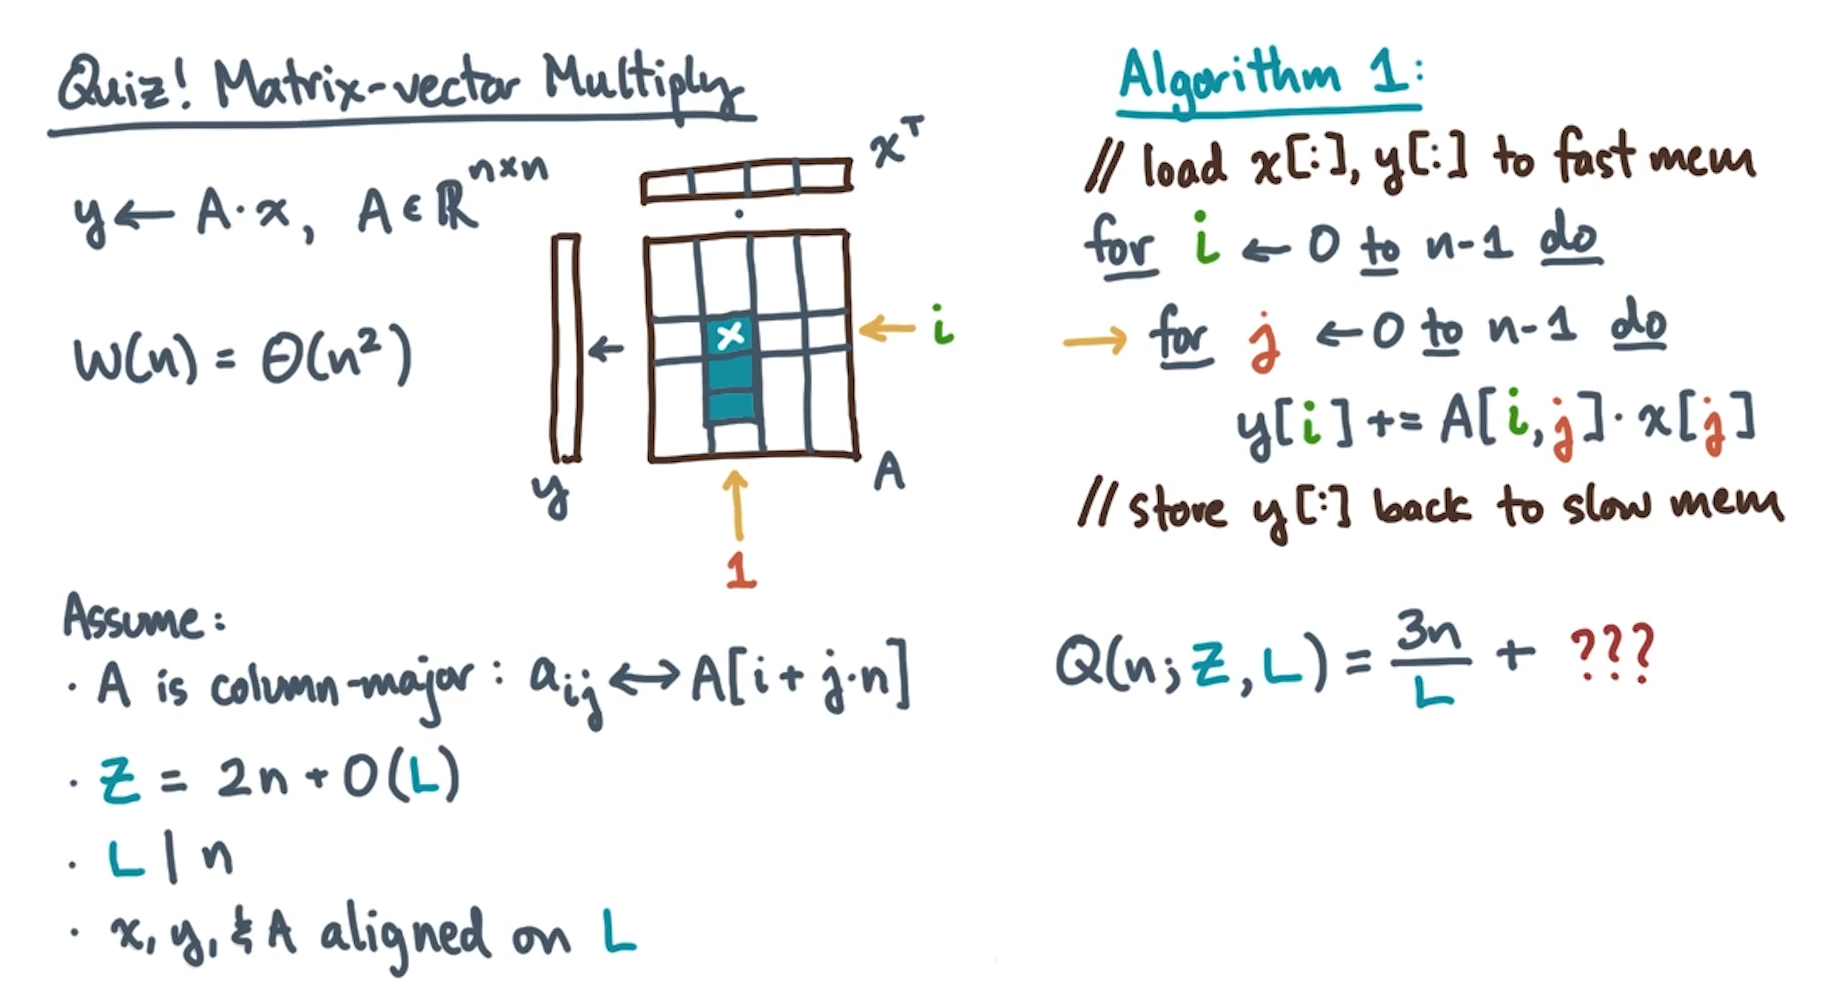 Quiz! Matrix-vector Multiply
y ← A·x, A ∈ ℝⁿˣⁿ
W(n) = Θ(n²)
xᵀ
·
← i
←
y
A
1
Assume:
· A is column-major: aᵢⱼ ↔ A[i + j·n]
· Z = 2n + O(L)
· L | n
· x, y, & A aligned on L
Algorithm 1:
// load x[:], y[:] to fast mem
for i ← 0 to n-1 do
→ for j ← 0 to n-1 do
y[i] += A[i,j]· x[j]
// store y[:] back to slow mem
Q(n; Z, L) = 3n/L + ???